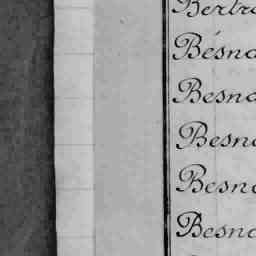 Bertra
Bésna
Besna
Besna
Besna
Besna